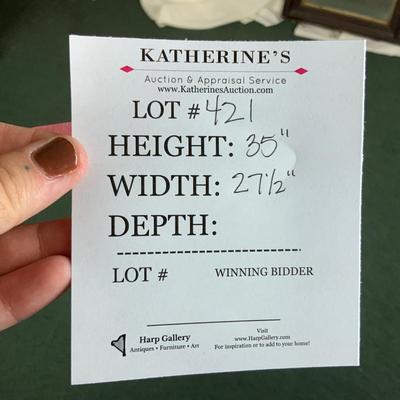 KATHERINE'S
Auction & Appraisal Service
www.KatherinesAuction.com
LOT # 421
HEIGHT: 35"
WIDTH: 27½"
DEPTH:
LOT # WINNING BIDDER
Harp Gallery
Antiques • Furniture • Art
Visit
www.HarpGallery.com
For inspiration or to add to your home!